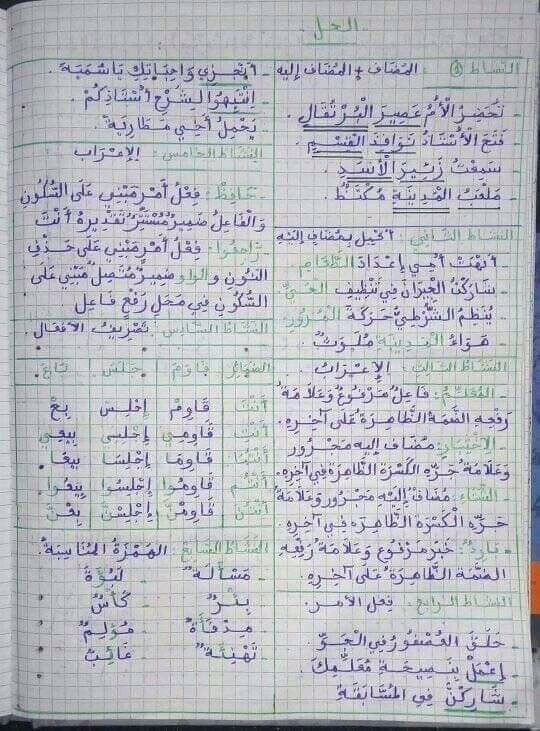 الحل
النشاط 1 : المضاف + المضاف إليه
تُحَضِّرُ الْأُمُّ عَصِيرَ الْبُرْتُقَالِ.
فَتَحَ الْأُسْتَاذُ نَوَافِذَ الْقِسْمِ.
سَمِعْتُ زَئِيرَ الْأَسَدِ.
مَلْعَبُ الْمَدِينَةِ مُكْتَظٌّ.
النشاط الثاني : أكمل بمضاف إليه
أنهت أمي إعداد الطعام
- شاركنا الجيران في تنظيف الحي
ينظم الشرطي حركة المرور
هواء المدينة ملوث.
النشاط الثالث : الإعراب.
- المعلم : فاعل مرفوع وعلامة
رفعه الضمة الظاهرة على آخره.
: مضاف إليه مجرور
وعلامة جره الكسرة الظاهرة في آخره.
- الشتاء : مضاف إليه مجرور وعلامة
جره الكسرة الظاهرة في آخره.
- بارد : خبر مرفوع وعلامة رفعه
الضمة الظاهرة على آخره.
النشاط الرابع : فعل الأمر.
حلق العصفور في الجو
- إعمل بنصيحة معلمك.
- شاركن في المسابقة
- أنجزي واجباتك يا سمية.
- انتبهوا لشرح أستاذكم.
يحمل أخي مطارية.
النشاط الخامس : الإعراب.
- حافظ : فعل أمر مبني على السكون
والفاعل ضمير مستتر تقديره أنت
- راجعوا : فعل أمر مبني على حذف
النون و الواو ضمير متصل مبني على
السكون في محل رفع فاعل
النشاط السادس : تصريف الأفعال.
الضمائر قاوم جلس باع
أنتَ قاوِمْ إجلس بع
أنتِ قاومي إجلسي بيعي
أنتما قاوما إجلسا بيعا
أنتم قاوموا إجلسوا بيعوا
أنتن قاومن إجلسن بعن
النشاط السابع : الهمزة المناسبة.
- مسألة - لبؤة
- بئر - كأس
- مدفأة - مؤلم
- تهنئة - غائب